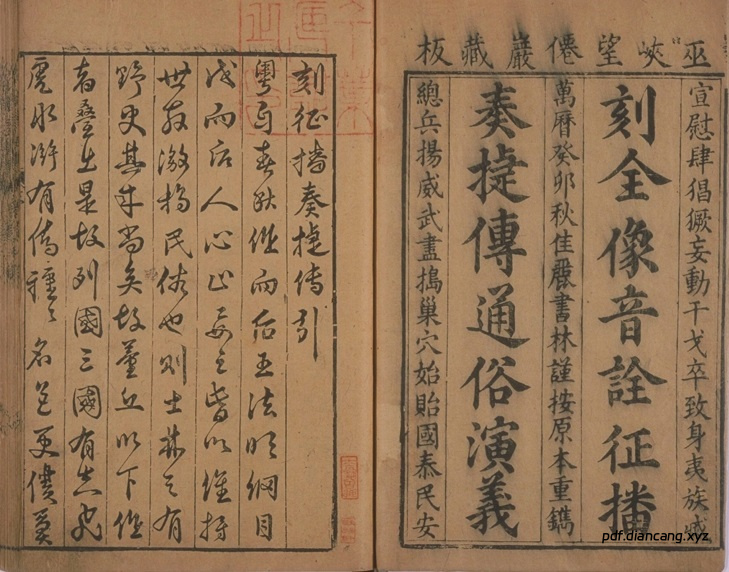 巫峽望僊巖藏板
宣慰肆猖獗妄動干戈卒致身夷族滅
刻全像音詮征播
萬曆癸卯秋佳麗書林謹按原本重鐫
奏捷傳通俗演義
總兵揚威武盡搗巢穴始貽國泰民安
刻征播奏捷傳引
粵自春秋作而后王法明綱目
成而后人心正要之皆以維持
世教激揚民俗也則士林之有
野史其來尚矣故董丘以下作
者疊出是故列國三國有志
水滸有傳種々名色更僕莫
pdf.diancang.xyz